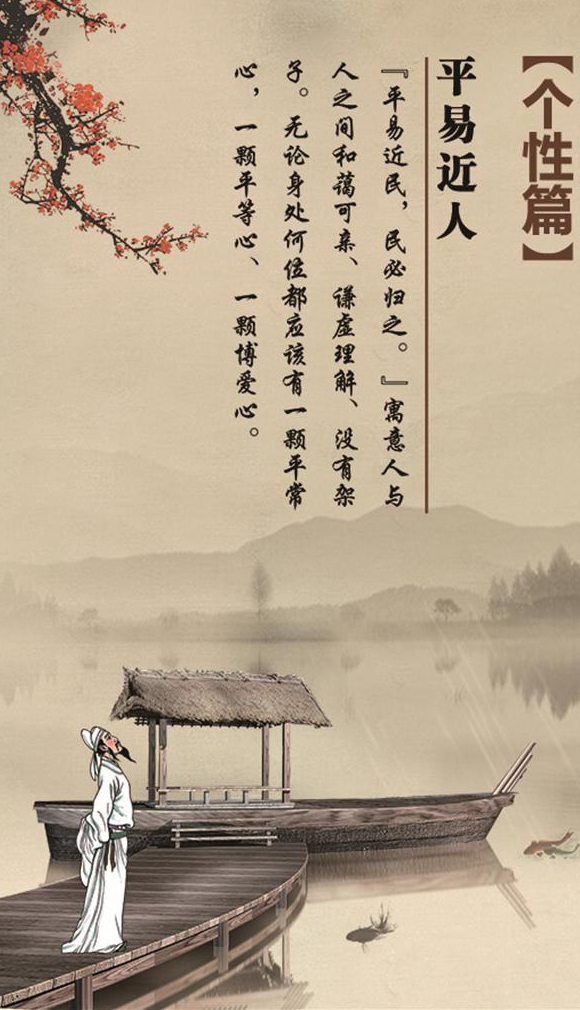 【个性篇】
平易近人
『平易近民，民必归之。』寓意人与
人之间和蔼可亲、谦虚理解、没有架
子。无论身处何位都应该有一颗平常
心，一颗平等心、一颗博爱心。